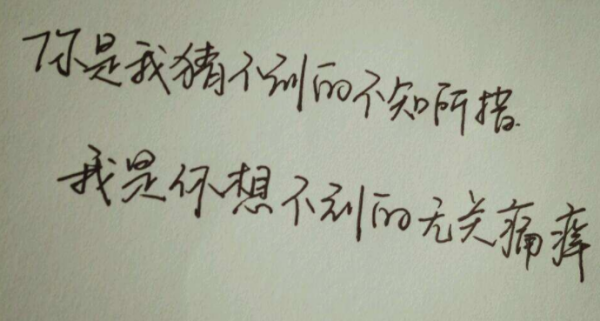 你是我猜不到的不知所措.
我是你想不到的无关痛痒